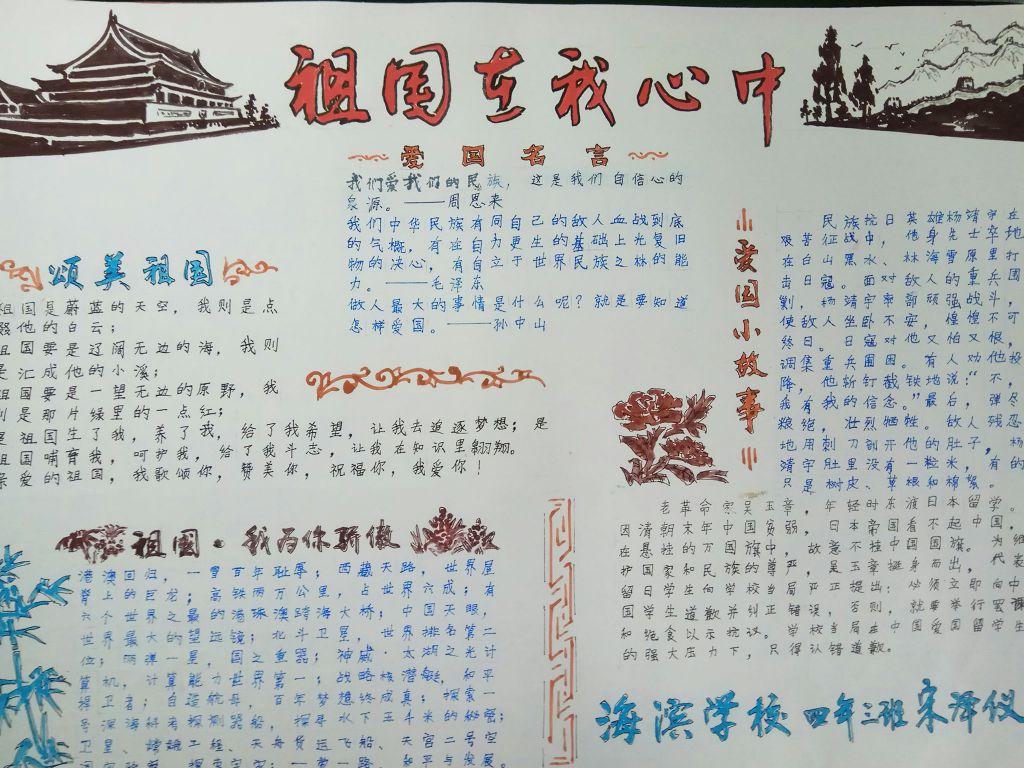 祖国在我心中
爱国名言
我们爱我们的民族，这是我们自信心的
泉源。——周恩来
我们中华民族有同自己的敌人血战到底
的气概，有在自力更生的基础上光复旧
物的决心，有自立于世界民族之林的能
力。——毛泽东
做人最大的事情是什么呢？就是要知道
怎样爱国。——孙中山
颂美祖国
祖国是蔚蓝的天空，我则是点
缀他的白云；
祖国要是辽阔无边的海，我则
是汇成他的小溪；
祖国要是一望无边的原野，我
则是那片绿里的一点红；
是祖国生了我，养了我，给了我希望，让我去追逐梦想；是
祖国哺育我，呵护我，给了我斗志，让我在知识里翱翔。
亲爱的祖国，我歌颂你，赞美你，祝福你，我爱你！
祖国·我为你骄傲
港澳回归，一雪百年耻辱；西藏天路，世界屋
脊上的巨龙；高铁两万公里，占世界六成；有
六个世界之最的港珠澳跨海大桥；中国天眼，
世界最大的望远镜；北斗卫星，世界排名第二
位；两弹一星，国之重器；神威·太湖之光计
算机，计算能力世界第一；战略核潜艇，和平
捍卫者；自造航母，百年梦想终成真；探索一
号深海科考探测器船，探寻水下五千米的秘密；
卫星、嫦娥工程、天舟货运飞船、天宫二号空
一带一路，和平与发展。
爱国小故事
民族抗日英雄杨靖宇在
艰苦征战中，他身先士卒地
在白山黑水、林海雪原里打
击日寇。面对敌人的重兵围
剿，杨靖宇率部顽强战斗，
使敌人坐卧不安，惶惶不可
终日。日寇对他又怕又恨，
调集重兵围困。有人劝他投
降，他斩钉截铁地说：“不，
我有我的信念。”最后，弹尽
粮绝，壮烈牺牲。敌人残忍
地用刺刀剖开他的肚子，杨
靖宇肚里没有一粒米，有的
只是树皮、草根和棉絮。
老革命家吴玉章，年轻时东渡日本留学。
因清朝末年中国贫弱，日本帝国看不起中国，
在悬挂的万国旗中，故意不挂中国国旗。为维
护国家和民族的尊严，吴玉章挺身而出，代表
留日学生向学校当局严正提出：必须立即向中
国学生道歉并纠正错误，否则，就要举行罢课
和绝食以示抗议。学校当局在中国爱国留学生
的强大压力下，只得认错道歉。
海滨学校 四年三班 宋泽仪